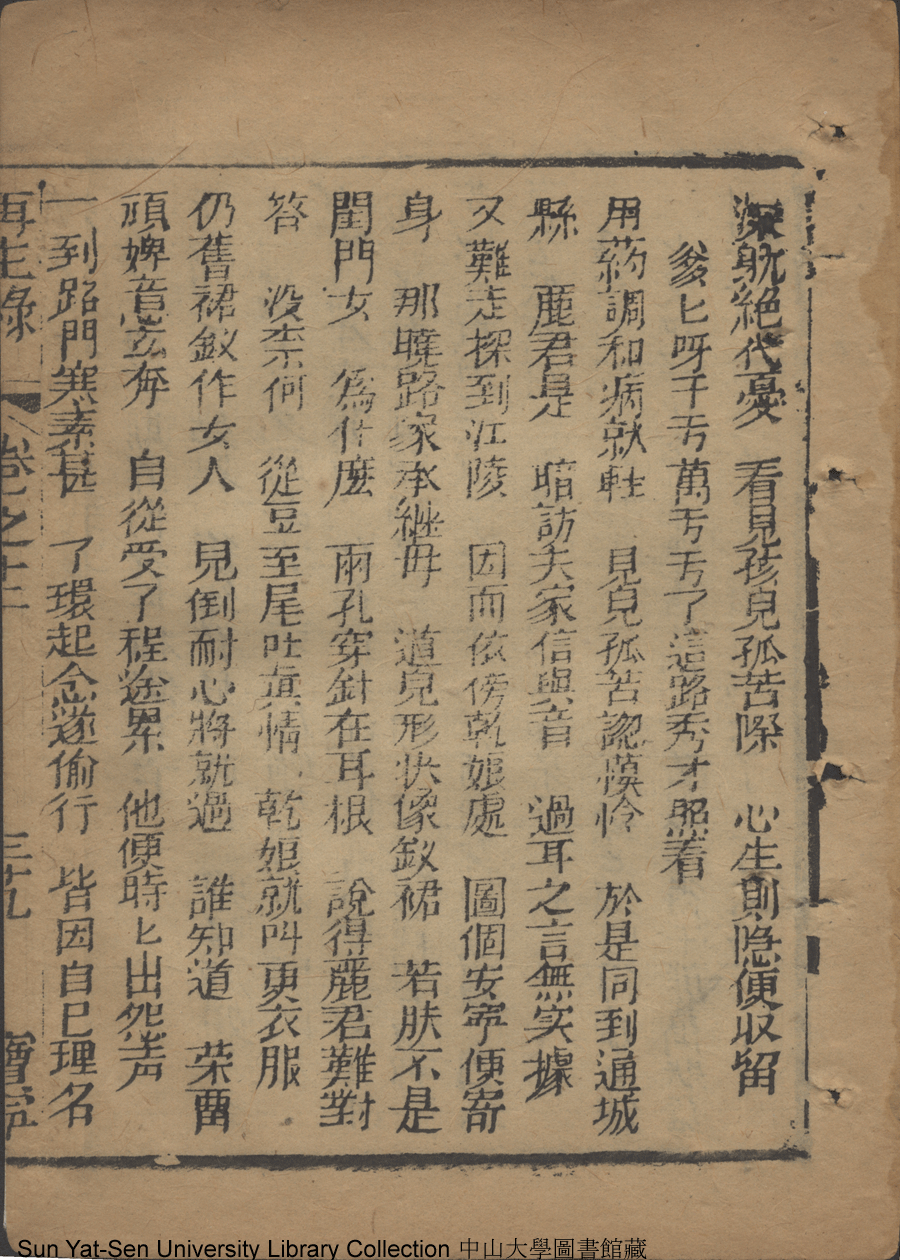 深躭絕代憂　看見孩兒孤苦際　心生則隐便收留
爹匕呀千亐萬亐亐了這路秀才照着
用葯調和病就軽　見兒孤苦認慔怜　於是同到通城
縣　麗君是　暗訪夫家信與音　過耳之言無实據
又難走探到江陵　因而依傍乾娘處　圖個安寕便寄
身　那曉路家承継毋　道兒形状像釵裙　若肤不是
閨門女　為什麽　兩孔穿針在耳根　說得麗君難對
答　没柰何　從豆至尾吐眞情　乾娘就呌更衣服
仍舊裙釵作女人　見倒耐心將就過　誰知道　荣
頑婢意　自從受了程途累　他便時匕出怨声
一到路門寒素甚　了環起念遂偷行　皆因自巳理名
再生緣　卷之十二　三十九　會寕
Sun Yat-Sen University Library Collection 中山大學圖書館藏